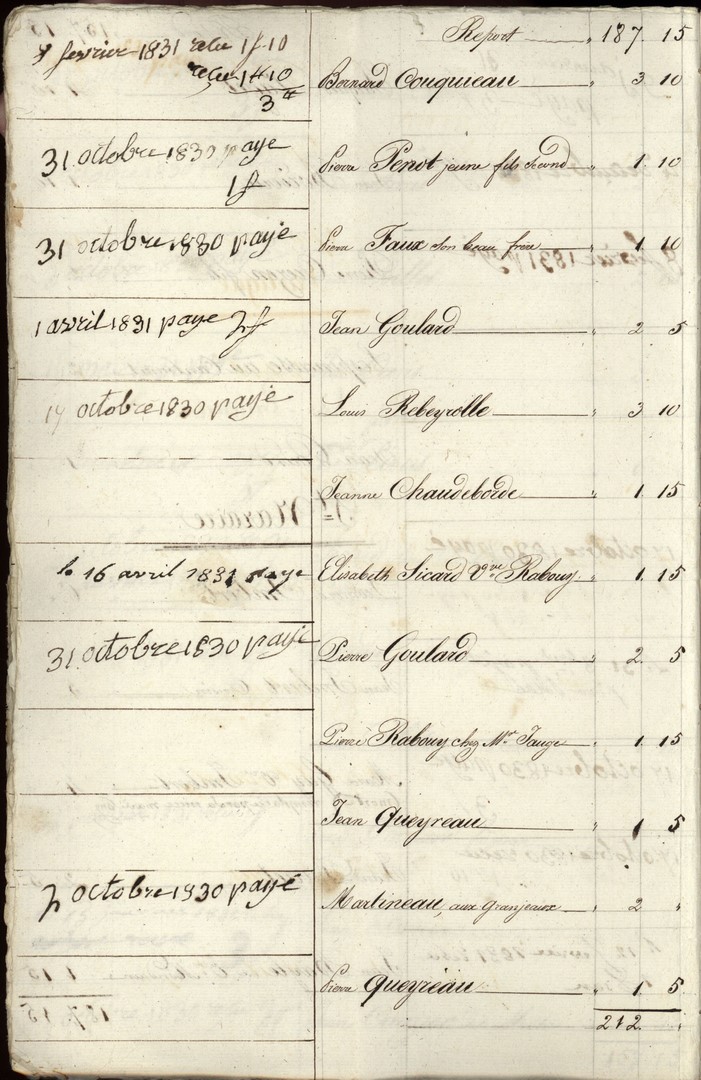 Report 187. 15
février 1831 reçu 1f 10
reçu 1 10
3
Bernard Couquieau 3 10
31 octobre 1830 paye
1f
Pierre Penot jeune fils Second 1. 10
31 octobre 1830 payé
Pierre Faux son beau frère 1. 10
1 avril 1831 paye 2f
Jean Goulard 2. 5
octobre 1830 payé
Louis Rebeyrolle 3 10
Jeanne Chaudeborde 1. 15
le 16 avril 1831 paye
Elisabeth Sicard Vve Rabouy 1. 15
31 octobre 1830 payé
Pierre Goulard 2. 5
Pierre Rabouy chez Mr Jauge 1. 15
Jean Queyreau 1 5
octobre 1830 payé
Martineau, aux Granjeaux 2 "
Pierre Queyreau 1. 5
212. "